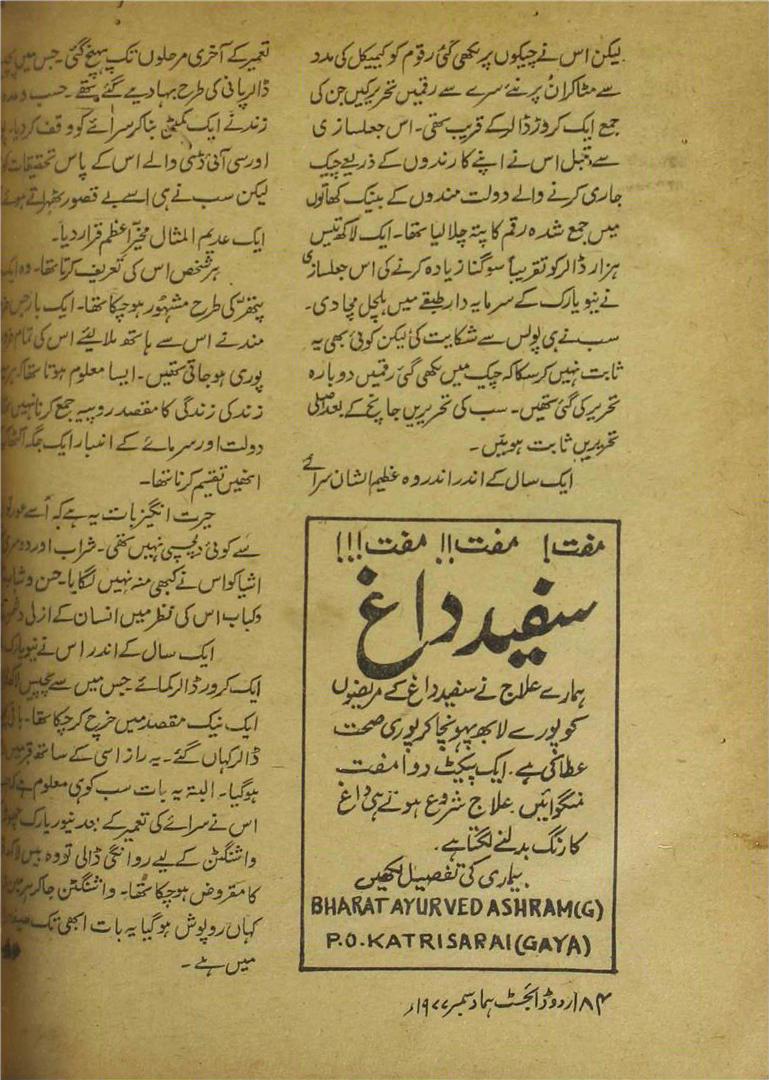 لیکن اس نے چیکوں پر لکھی گئی رقوم کو کیمیکل کی مدد
سے مٹا کر ان پر نئے سرے سے رقمیں تحریر کیں جن کی
جمع ایک کروڑ ڈالر کے قریب تھی۔ اس جعلسازی
سے قبل اس نے اپنے کارندوں کے ذریعے چیک
جاری کرنے والے دولت مندوں کے بینک کھاتوں
میں جمع شدہ رقم کا پتہ چلا لیا تھا۔ ایک لاکھ تیس
ہزار ڈالر کو تقریباً سو گنا زیادہ کرنے کی اس جعلسازی
نے نیو یارک کے سرمایہ دار طبقے میں ہلچل مچا دی۔
سب نے ہی پولس سے شکایت کی لیکن کوئی بھی یہ
ثابت نہیں کر سکا کہ چیک میں لکھی گئی رقمیں دوبارہ
تحریر کی گئی تھیں۔ سب کی تحریریں جانچ کے بعد اصلی
تحریریں ثابت ہوئیں۔
ایک سال کے اندر اندر وہ عظیم الشان سرائے
مفت! مفت!! مفت!!!
سفید داغ
ہمارے علاج نے سفید داغ کے مریضوں
کو پورے لابھ پہونچا کر پوری صحت
عطا کی ہے۔ ایک پیکٹ دوا مفت
منگوائیں۔ علاج شروع ہوتے ہی داغ
کا رنگ بدلنے لگتا ہے۔
بیماری کی تفصیل لکھیں
BHARAT AYURVED ASHRAM(G)
P.O. KATRISARAI (GAYA)
تعمیر کے آخری مرحلوں تک پہنچ گئی۔ جس میں
ڈالر پانی کی طرح بہا دیے گئے تھے۔ حسب وعدہ
زند نے ایک کمیٹی بنا کر سرائے کو وقف کر دیا۔
اور سی آئی ڈی والے اس کے پاس تحقیقات
لیکن سب نے ہی اسے بے قصور ٹھہراتے ہوئے
ایک عدیم المثال مخیر اعظم قرار دیا۔
ہر شخص اس کی تعریف کرتا تھا۔ وہ
پتھر کی طرح مشہور ہو چکا تھا۔ ایک بار جس
مند نے اس سے ہاتھ ملا لیئے اس کی تمام
پوری ہو جاتی تھیں۔ ایسا معلوم ہوتا تھا کہ
زند کی زندگی کا مقصد روپیہ جمع کرنا نہیں
دولت اور سرمائے کے انبار ایک جگہ
انھیں تقسیم کرنا تھا۔
حیرت انگیز بات یہ ہے کہ اُسے
سے کوئی دلچسپی نہیں تھی۔ شراب اور دوسری
اشیا کو اس نے کبھی منہ نہیں لگایا۔ حسن و شباب
و کباب اس کی نظر میں انسان کے ازلی دشمن
ایک سال کے اندر اس نے نیویارک
ایک کروڑ ڈالر کمائے۔ جس میں سے پچیس لاکھ
ایک نیک مقصد میں خرچ کر چکا تھا۔ باقی
ڈالر کہاں گئے۔ یہ راز اسی کے ساتھ قبر میں
ہو گیا۔ البتہ یہ بات سب کو ہی معلوم ہے کہ
اس نے سرائے کی تعمیر کے بعد نیویارک
واشنگٹن کے لیے روانگی ڈالی تو وہ بیس لاکھ
کا مقروض ہو چکا تھا۔ واشنگٹن جا کر
کہاں روپوش ہو گیا یہ بات ابھی تک
میں ہے۔
۸۴ اردو ڈائجسٹ ہما دسمبر ۱۹۷۷ء